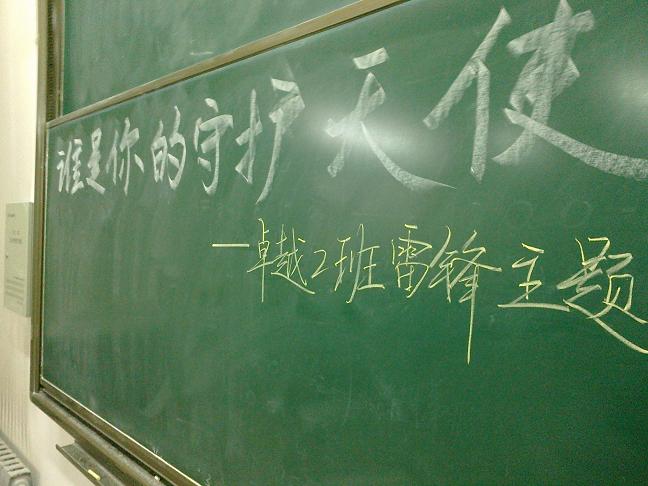 谁是你的守护天使
—卓越2班雷锋主题